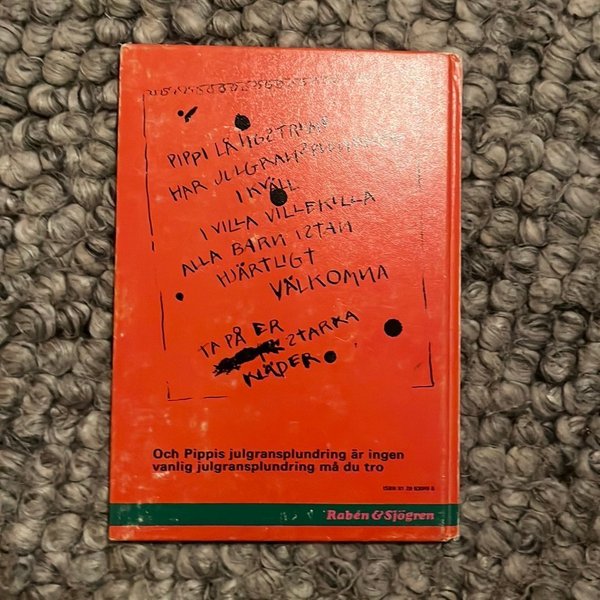 PIPPI LÅNGSTRUMP
HAR JULGRANSPLUNDRING
I KVÄLL
I VILLA VILLEKILLA
ALLA BARN ISTAN
HJÄRTLIGT
VÄLKOMNA
TA PÅ ER
STARKA
KLÄDER
Och Pippis julgransplundring är ingen
vanlig julgransplundring må du tro
Rabén & Sjögren